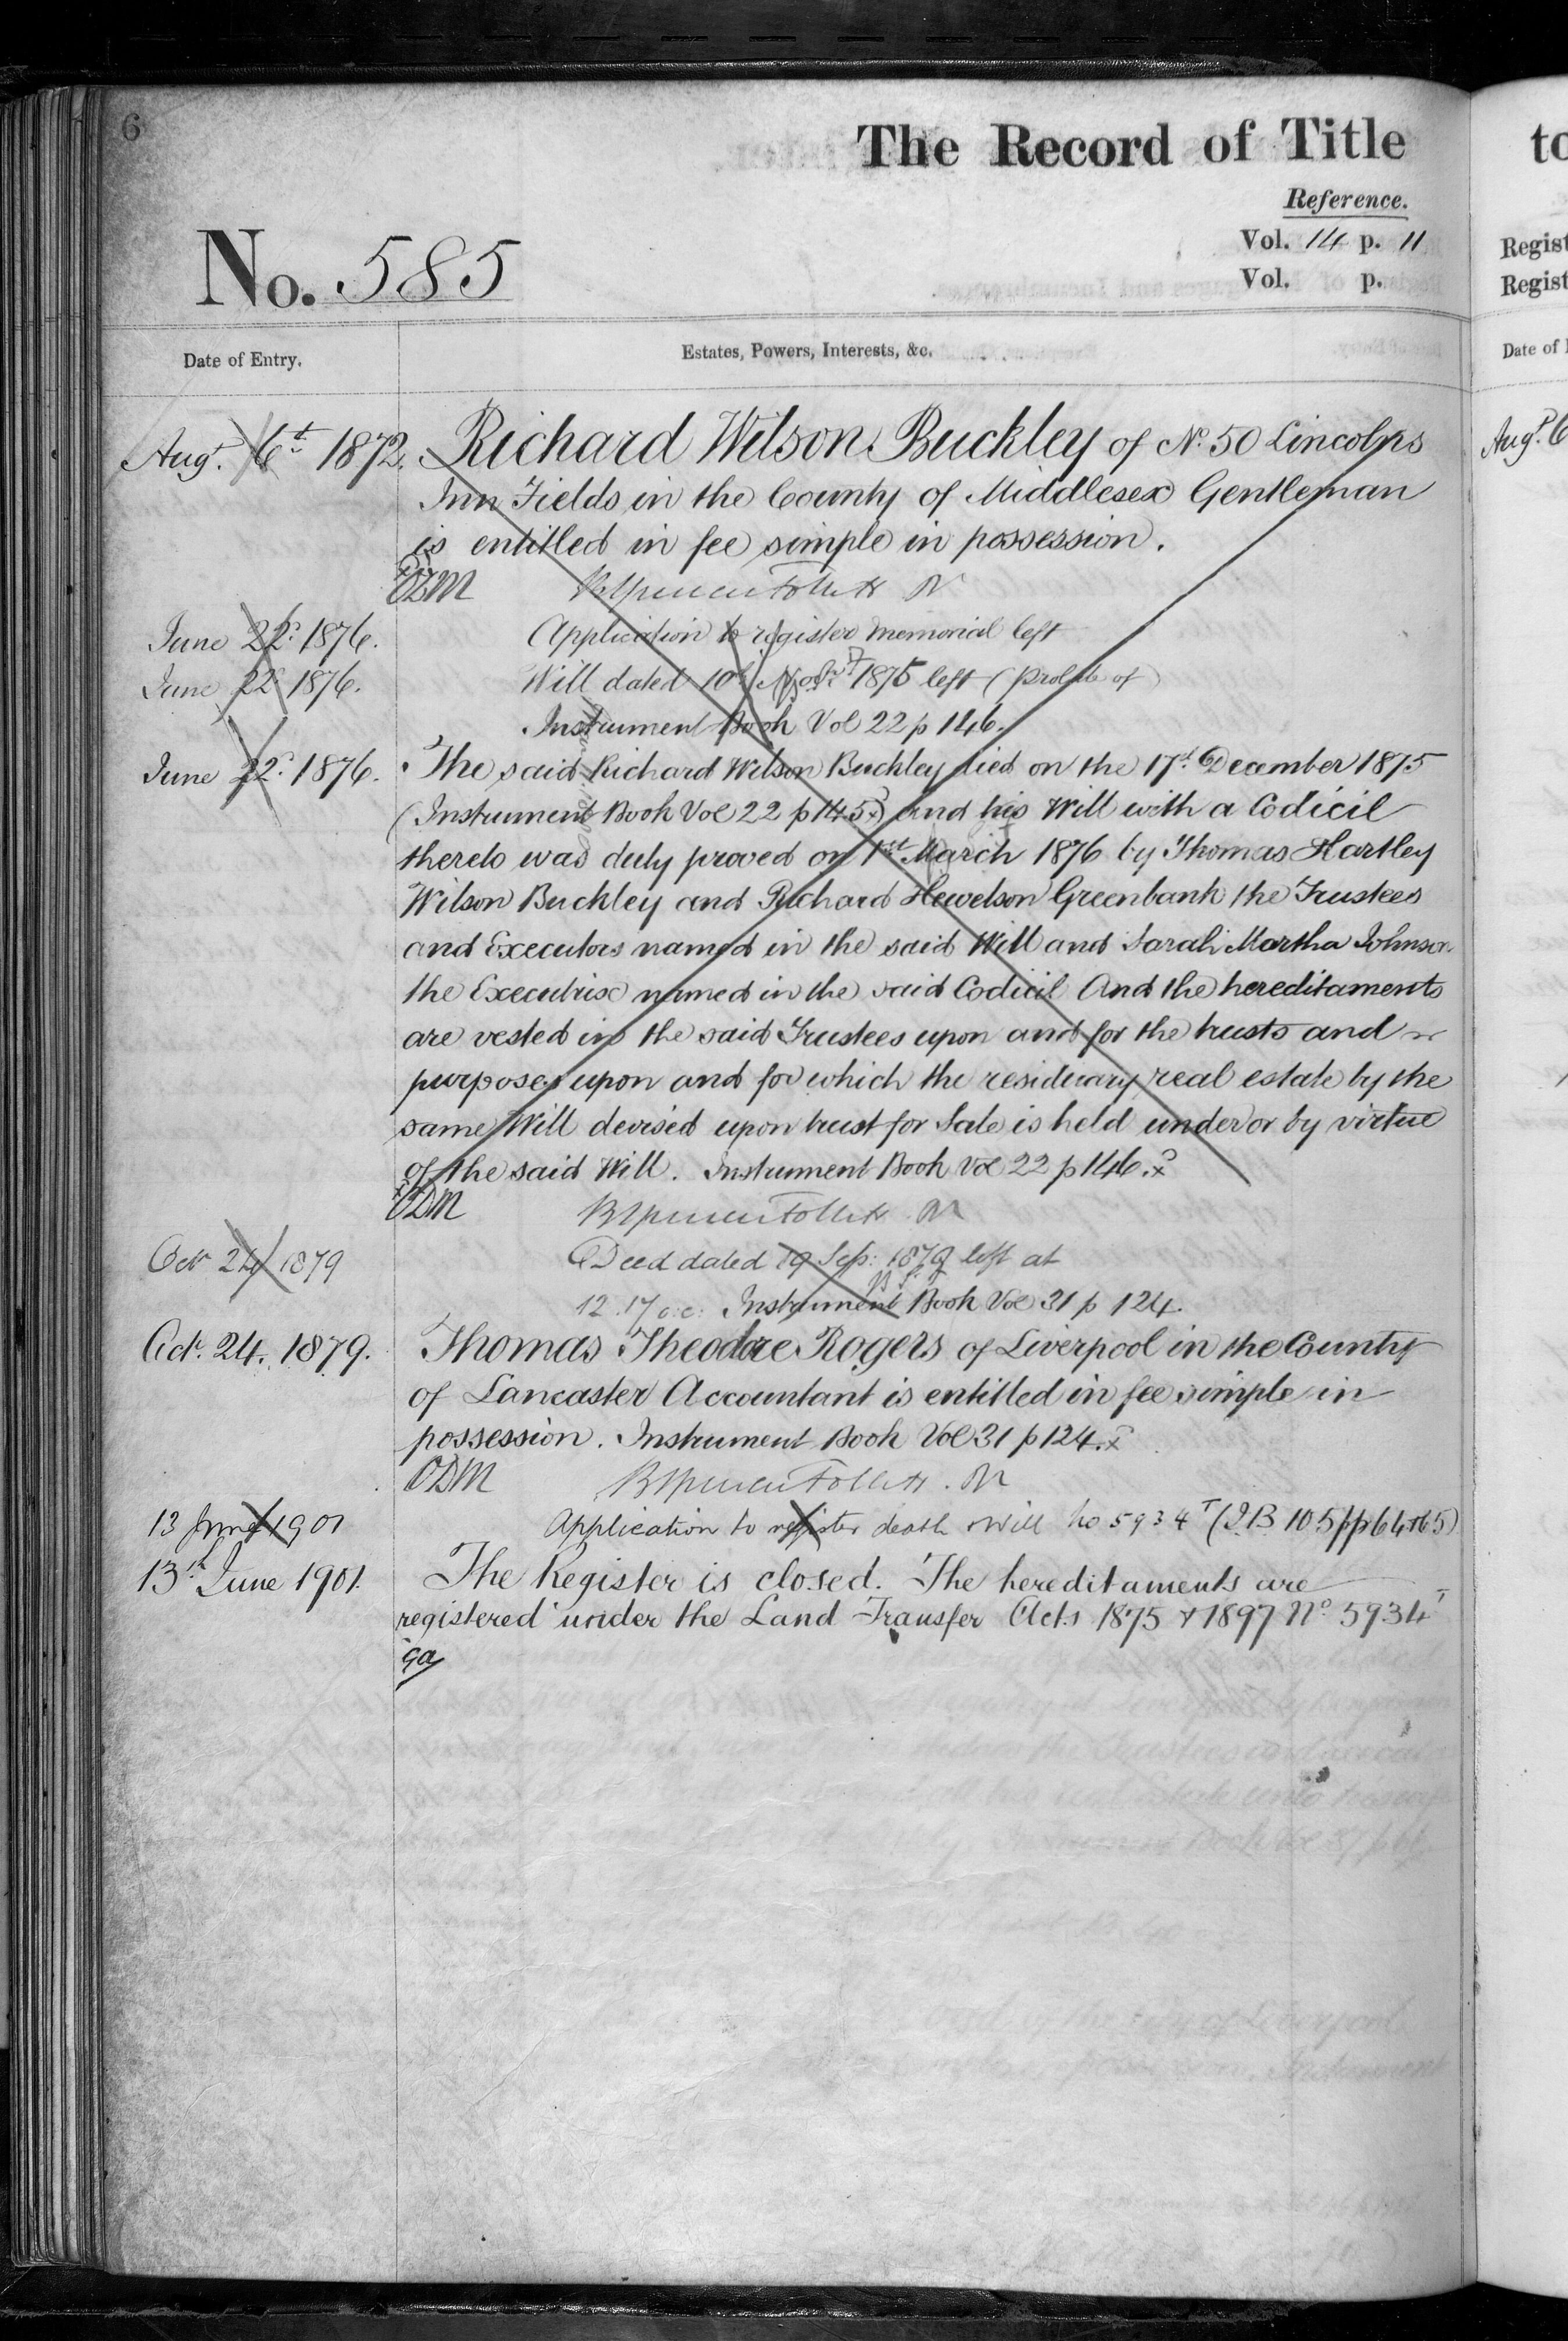 6
The Record of Title
to
Reference.
Vol. 14 p. 11
Vol. p.
Regist
Regist
No. 585
Date of Entry.
Estates, Powers, Interests, &c.
Date of
Augt. 6th 1872. Richard Wilson Buckley of No. 50 Lincolns
Augt. 6
Inn Fields in the County of Middlesex Gentleman
is entitled in fee simple in possession.
ODM
June 22d. 1876. Application to register memorial left
June 22d 1876. Will dated 10th 1875 left (Probate of)
Instrument Book Vol 22 p 146.
June 22d. 1876. The said Richard Wilson Buckley died on the 17th December 1875
(Instrument Book Vol 22 p 145) and his Will with a Codicil
thereto was duly proved on 1st March 1876 by Thomas Hartley
Wilson Buckley and Richard Hewetson Greenbank the Trustees
and Executors named in the said Will and Sarah Martha Johnson
the Executrix named in the said Codicil And the hereditaments
are vested in the said Trustees upon and for the trusts and
purposes upon and for which the residuary real estate by the
same Will devised upon trust for Sale is held under or by virtue
of the said Will. Instrument Book Vol 22 p 146.
ODM
Oct 24 1879 Deed dated 19 Sep: 1879 left at
12.17 o.c. Instrument Book Vol 31 p 124.
Oct. 24. 1879. Thomas Theodore Rogers of Liverpool in the County
of Lancaster Accountant is entitled in fee simple in
possession. Instrument Book Vol 31 p 124.
ODM
13 June 1901 Application to register death & Will No 5934T (I.B 105 pp 64 & 65)
13th June 1901. The Register is closed. The hereditaments are
registered under the Land Transfer Acts 1875 & 1897 No. 5934T